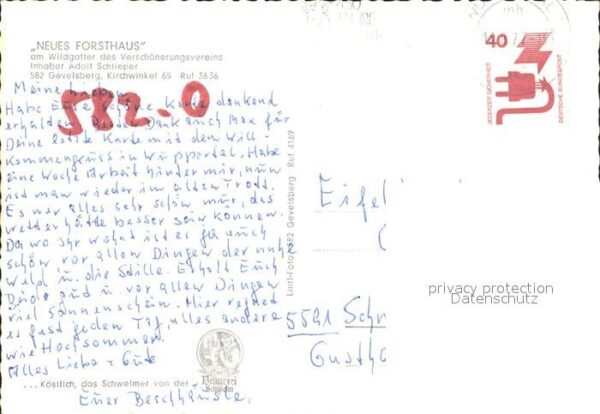 „NEUES FORSTHAUS"
am Wildgatter des Verschönerungsvereins
Inhaber Adolf Schlieper
582 Gevelsberg, Kirchwinkel 65 Ruf 3636
Meine Lieben
582.0
Habe Eure schöne Karte dankend
erhalten. Besten Dank auch Max für
Deine letzte Karte mit dem Will-
kommengruss in Wuppertal. Habe
eine Woche Arbeit hinter mir, nun
ist man wieder im alten Trott.
Es war alles sehr schön nur, das
Wetter hätte besser sein können.
Da wo Ihr wohnt ist es ja auch
schön vor allen Dingen der nahe
Wald u. die Stille. Erholt Euch
Beide gut u. vor allen Dingen
viel Sonnenschein. Hier regnet
es fast jeden Tag alles andere
wie Hochsommer.
Alles Liebe + Gute
... Köstlich, das Schwelmer von der Brauerei Schwelm
Euer
Lintl-Foto 582 Gevelsberg Ruf 4169
40
JEDERZEIT SICHERHEIT
DEUTSCHE BUNDESPOST
Eifel
privacy protection
Datenschutz
5521 Sch
Gustho